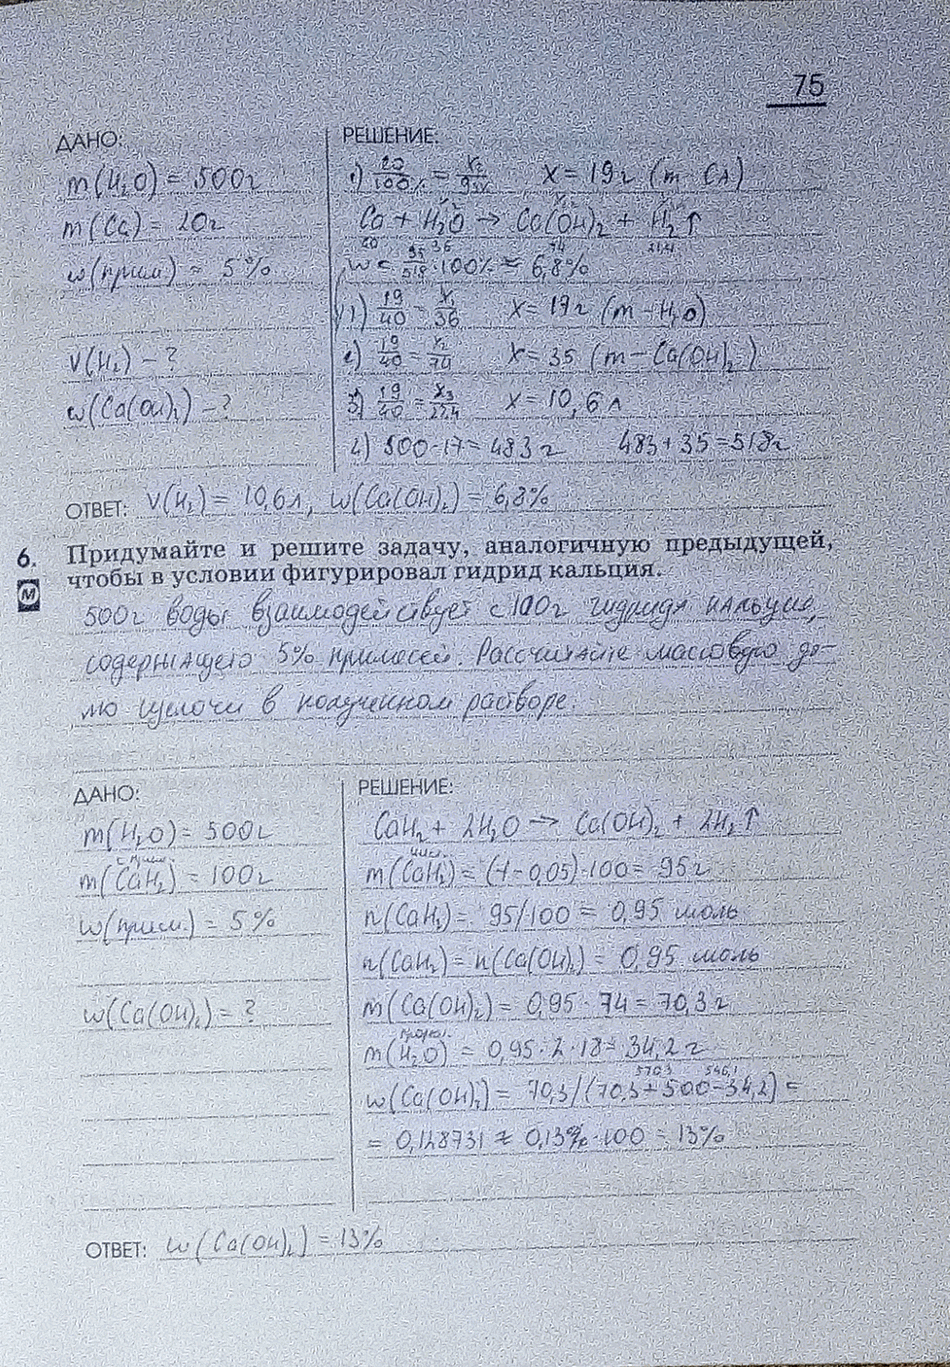 75
ДАНО: РЕШЕНИЕ:
m(H₂O) = 500г
m(Ca) = 20г
w(прим) = 5%
V(H₂) – ?
w(Ca(OH)₂) – ?
20/100% = x/95% x = 19г (m – Ca)
Ca + H₂O → Ca(OH)₂ + H₂↑
w = 35/518 · 100% ≈ 6,8%
1) 19/40 = x₁/36 x = 17г (m – H₂O)
2) 19/40 = x₂/74 x = 35 (m – Ca(OH)₂)
3) 19/40 = x₃/22,4 x = 10,6 л
4) 500 - 17 = 483 г 483 + 35 = 518г
ОТВЕТ: V(H₂) = 10,6л, w(Ca(OH)₂) = 6,8%
6. Придумайте и решите задачу, аналогичную предыдущей,
чтобы в условии фигурировал гидрид кальция.
М
500г воды взаимодействует с 100г гидрида кальция,
содержащего 5% примесей. Рассчитайте массовую до-
лю щелочи в полученном растворе.
ДАНО: РЕШЕНИЕ:
m(H₂O) = 500г
с прим.
m(CaH₂) = 100г
w(прим.) = 5%
w(Ca(OH)₂) = ?
CaH₂ + 2H₂O → Ca(OH)₂ + 2H₂↑
чист.
m(CaH₂) = (1 - 0,05) · 100 = 95г
n(CaH₂) = 95/100 = 0,95 моль
n(CaH₂) = n(Ca(OH)₂) = 0,95 моль
m(Ca(OH)₂) = 0,95 · 74 = 70,3 г
m(H₂O) = 0,95 · 2 · 18 = 34,2 г
570,3 546,1
w(Ca(OH)₂) = 70,3/(70,3 + 500 - 34,2) =
= 0,128731 ≈ 0,13 · 100 = 13%
ОТВЕТ: w(Ca(OH)₂) = 13%